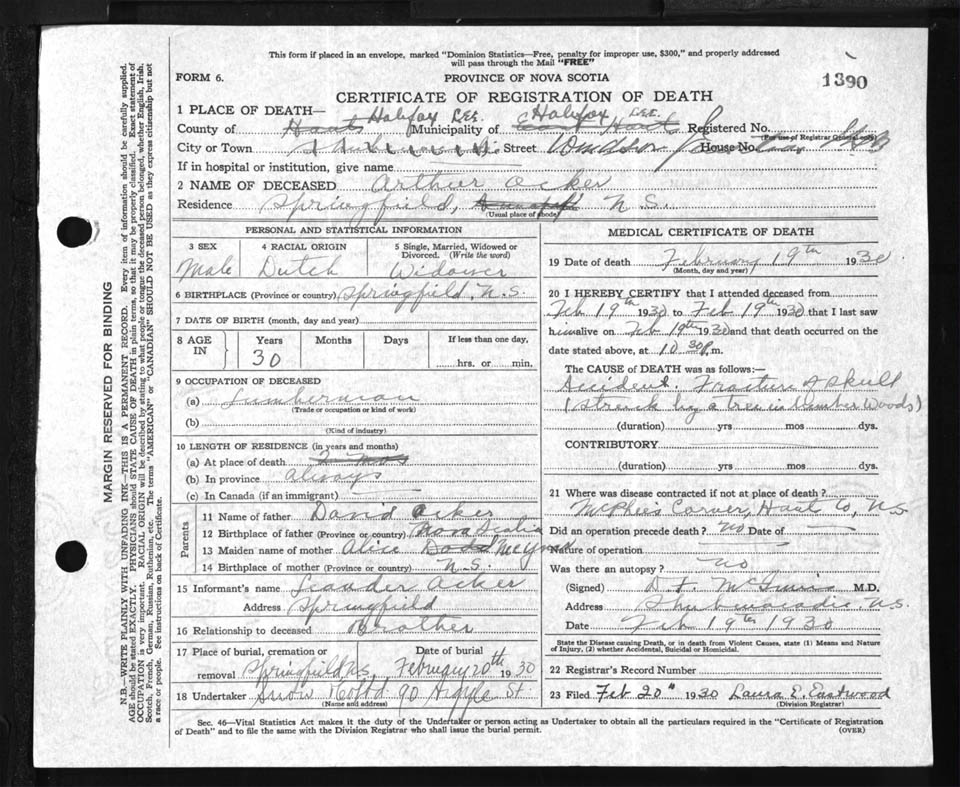 This form if placed in an envelope, marked "Dominion Statistics—Free, penalty for improper use, $300," and properly addressed
will pass through the Mail "FREE"
FORM 6.
PROVINCE OF NOVA SCOTIA
1390
CERTIFICATE OF REGISTRATION OF DEATH
1 PLACE OF DEATH—
Halifax Halifax
County of Hants Municipality of East Hants Registered No.
(For use of Registrar General only)
City or Town Street Windsor House No.
If in hospital or institution, give name
2 NAME OF DECEASED Arthur Ocker
Residence Springfield, Annapolis N.S.
(Usual place of abode)
PERSONAL AND STATISTICAL INFORMATION
3 SEX
4 RACIAL ORIGIN
5 Single, Married, Widowed or Divorced. (Write the word)
Male Dutch Widower
6 BIRTHPLACE (Province or country) Springfield, N.S.
7 DATE OF BIRTH (month, day and year)
8 AGE IN
Years Months Days If less than one day,
30 hrs. or min.
9 OCCUPATION OF DECEASED
(a) Lumberman
(Trade or occupation or kind of work)
(b)
(Kind of industry)
10 LENGTH OF RESIDENCE (in years and months)
(a) At place of death 2 mos
(b) In province Always
(c) In Canada (if an immigrant)
Parents
11 Name of father David Ocker
12 Birthplace of father (Province or country) Nova Scotia
13 Maiden name of mother Alice
14 Birthplace of mother (Province or country) N.S.
15 Informant's name Leander Ocker
Address Springfield
16 Relationship to deceased Brother
17 Place of burial, cremation or removal Springfield N.S.
Date of burial
February 20th 1930
18 Undertaker Snow & Co Ltd. 90 Argyle St.
(Name and address)
MEDICAL CERTIFICATE OF DEATH
19 Date of death February 19th 1930
(Month, day and year)
20 I HEREBY CERTIFY that I attended deceased from
Feb 19th 1930 to Feb 19th 1930 that I last saw
him alive on Feb 19th 1930 and that death occurred on
date stated above, at 10.30 p.m.
The CAUSE of DEATH was as follows:—
Accident. Fracture of Skull
(Struck by a tree in Lumber Woods)
(duration) yrs mos dys.
CONTRIBUTORY
(duration) yrs mos dys.
21 Where was disease contracted if not at place of death?
McPhees Corner, Hants Co, N.S
Did an operation precede death? no Date of
Nature of operation
Was there an autopsy? no
(Signed) D. F. McInnis M.D.
Address Shubenacadie, N.S.
Date Feb 19th 1930
State the Disease causing Death, or in death from Violent Causes, state (1) Means and Nature
of Injury, (2) whether Accidental, Suicidal or Homicidal.
22 Registrar's Record Number
23 Filed Feb 20th 1930 Laura E. Eastwood
(Division Registrar)
Sec. 46—Vital Statistics Act makes it the duty of the Undertaker or person acting as Undertaker to obtain all the particulars required in the "Certificate of Registration
of Death" and to file the same with the Division Registrar who shall issue the burial permit.
(OVER)
MARGIN RESERVED FOR BINDING
N.B.—WRITE PLAINLY WITH UNFADING INK—THIS IS A PERMANENT RECORD. Every item of information should be carefully supplied.
AGE should be stated EXACTLY. PHYSICIANS should STATE CAUSE OF DEATH in plain terms, so that it may be properly classified. Exact statement of
OCCUPATION is very important. RACIAL ORIGIN will be described by stating to what people or tongue the deceased person belonged, whether English, Irish,
Scotch, French, German, Russian, Ruthenian, etc. The terms "AMERICAN" or "CANADIAN" SHOULD NOT BE USED as they express citizenship but not
a race or people. See instructions on back of Certificate.